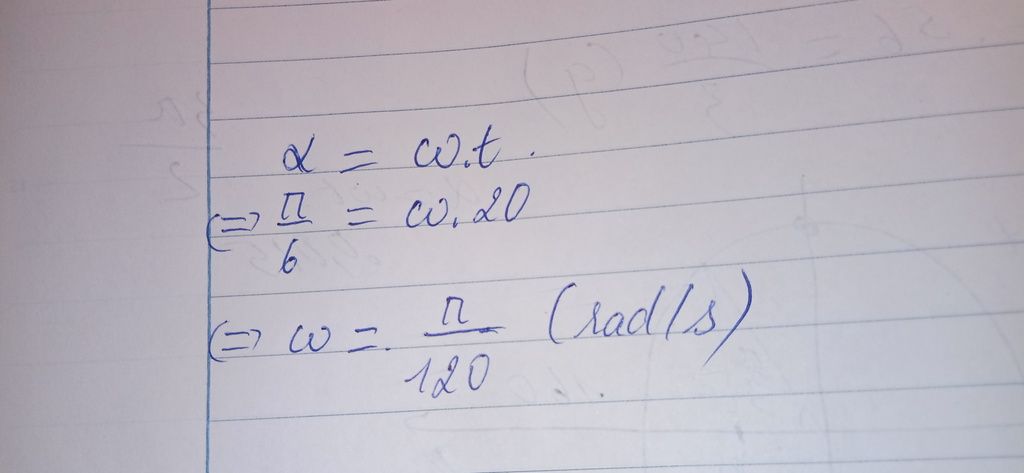 α = ω.t.
⇔ π/6 = ω.20
⇔ ω = π/120 (rad/s)